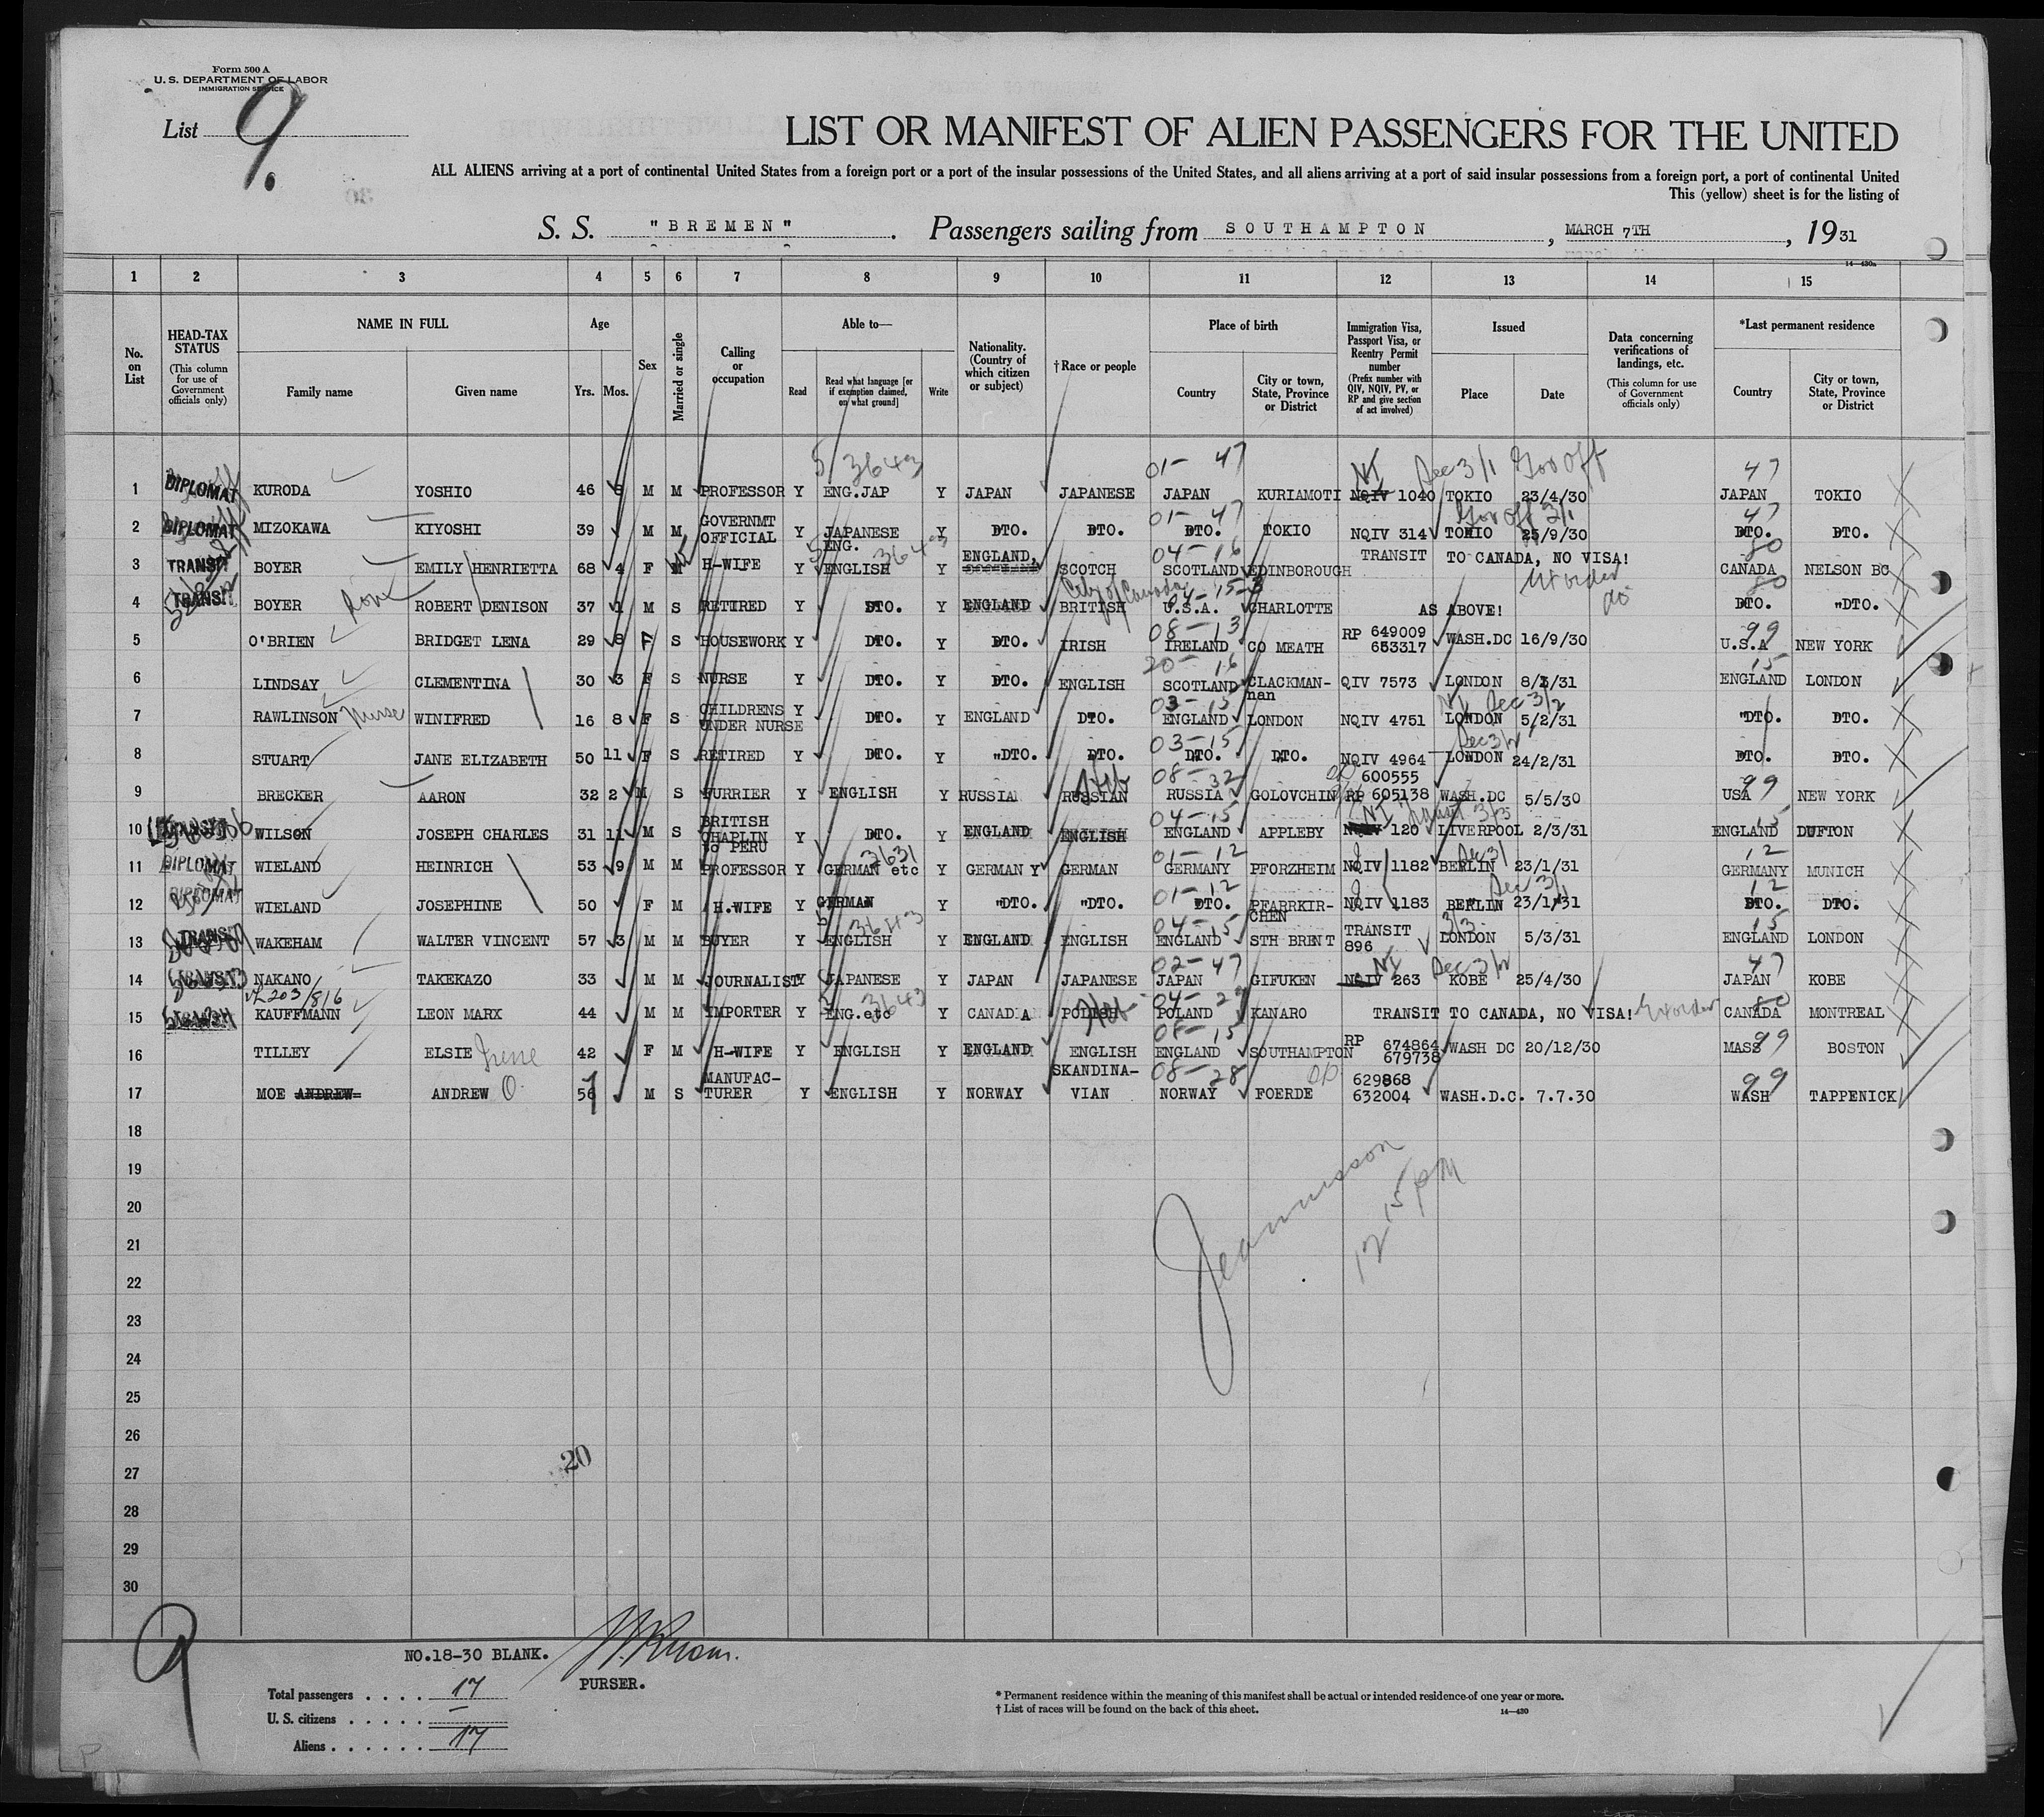 Form 500 A
U. S. DEPARTMENT OF LABOR
IMMIGRATION SERVICE
List 9.
LIST OR MANIFEST OF ALIEN PASSENGERS FOR THE UNITED
ALL ALIENS arriving at a port of continental United States from a foreign port or a port of the insular possessions of the United States, and all aliens arriving at a port of said insular possessions from a foreign port, a port of continental United
This (yellow) sheet is for the listing of
S. S. "BREMEN". Passengers sailing from SOUTHAMPTON, MARCH 7TH, 1931
14—430a
1 2 3 4 5 6 7 8 9 10 11 12 13 14 15
No. on List
HEAD-TAX STATUS (This column for use of Government officials only)
NAME IN FULL Family name Given name
Age Yrs. Mos.
Sex
Married or single
Calling or occupation
Able to— Read Read what language [or if exemption claimed, on what ground] Write
Nationality. (Country of which citizen or subject)
† Race or people
Place of birth Country City or town, State, Province or District
Immigration Visa, Passport Visa, or Reentry Permit number (Prefix number with QIV, NQIV, PV, or RP and give section of act involved)
Issued Place Date
Data concerning verifications of landings, etc. (This column for use of Government officials only)
*Last permanent residence Country City or town, State, Province or District
5 3643 01- 47 NI Sec 3/1 Gov Off 47
1 DIPLOMAT KURODA YOSHIO 46 M M PROFESSOR Y ENG.JAP Y JAPAN JAPANESE JAPAN KURIAMOTI NQIV 1040 TOKIO 23/4/30 JAPAN TOKIO
01- 47 Gov Off 3/1 47
2 DIPLOMAT MIZOKAWA KIYOSHI 39 M M GOVERNMT OFFICIAL Y JAPANESE ENG. Y DTO. DTO. DTO. TOKIO NQIV 314 TOKIO 25/9/30 DTO. DTO.
5 3643 04-16 80
3 TRANSIT BOYER EMILY HENRIETTA 68 4 F M H-WIFE Y ENGLISH Y ENGLAND, SCOTCH SCOTLAND EDINBOROUGH TRANSIT TO CANADA, NO VISA! CANADA NELSON BC
80
4 TRANSIT BOYER ROBERT DENISON 37 1 M S RETIRED Y DTO. Y ENGLAND BRITISH U.S.A. CHARLOTTE AS ABOVE! DTO. "DTO.
08-13 99
5 O'BRIEN BRIDGET LENA 29 8 F S HOUSEWORK Y DTO. Y DTO. IRISH IRELAND CO MEATH RP 649009 653317 WASH.DC 16/9/30 U.S.A NEW YORK
20- 16 15
6 LINDSAY CLEMENTINA 30 3 F S NURSE Y DTO. Y DTO. ENGLISH SCOTLAND CLACKMAN-nan QIV 7573 LONDON ENGLAND LONDON
03-15 NI Sec 3/2
7 RAWLINSON Nurse WINIFRED 16 8 F S CHILDRENS UNDER NURSE Y DTO. Y ENGLAND DTO. ENGLAND LONDON NQIV 4751 LONDON 5/2/31 "DTO. DTO.
03-15 Sec 3/2
8 STUART JANE ELIZABETH 50 11 F S RETIRED Y DTO. Y "DTO. DTO. DTO. DTO. NQIV 4964 LONDON 24/2/31 DTO. DTO.
08-32 99
9 BRECKER AARON 32 2 M S FURRIER Y ENGLISH Y RUSSIA RUSSIAN RUSSIA GOLOVCHIN 600555 RP 605138 WASH.DC 5/5/30 USA NEW YORK
04-15 NI 3/3 15
10 WILSON JOSEPH CHARLES 31 11 M S BRITISH CHAPLIN to PERU Y DTO. Y ENGLAND ENGLISH ENGLAND APPLEBY NQIV 120 LIVERPOOL 2/3/31 ENGLAND DUFTON
3631 01-12 Sec 31 12
11 DIPLOMAT WIELAND HEINRICH 53 9 M M PROFESSOR Y GERMAN etc Y GERMAN Y GERMAN GERMANY PFORZHEIM NQIV 1182 BERLIN 23/1/31 GERMANY MUNICH
01-12 Sec 3/1 12
12 DIPLOMAT WIELAND JOSEPHINE 50 F M H.WIFE Y GERMAN Y "DTO. "DTO. DTO. PFARRKIR-CHEN NQIV 1183 BERLIN 23/1/31 DTO. DTO.
5 3643 04-15 3/3 15
13 TRANSIT WAKEHAM WALTER VINCENT 57 3 M M BUYER Y ENGLISH Y ENGLAND ENGLISH ENGLAND STH BRENT TRANSIT 896 LONDON 5/3/31 ENGLAND LONDON
02-47 NI Sec 3/2 47
14 TRANSIT NAKANO TAKEKAZO 33 M M JOURNALIST Y JAPANESE Y JAPAN JAPANESE JAPAN GIFUKEN NQIV 263 KOBE 25/4/30 JAPAN KOBE
3643
15 KAUFFMANN LEON MARX 44 M M IMPORTER Y ENG.etc Y CANADIAN POLISH POLAND KANARO TRANSIT TO CANADA, NO VISA! CANADA MONTREAL
08-15 99
16 TILLEY ELSIE Irene 42 F M H-WIFE Y ENGLISH Y ENGLAND ENGLISH ENGLAND SOUTHAMPTON RP 674864 679738 WASH DC 20/12/30 MASS BOSTON
08-28 99
17 MOE ANDREW ANDREW O. M S MANUFAC-TURER Y ENGLISH Y NORWAY SKANDINA-VIAN NORWAY FOERDE 629868 632004 WASH.D.C. 7.7.30 WASH TAPPENICK
18
19
20
12 15 PM
21
22
23
24
25
26
20
27
28
29
30
9
NO.18-30 BLANK.
PURSER.
Total passengers . . . . 17
U. S. citizens . . . . . —
Aliens . . . . . . 17
* Permanent residence within the meaning of this manifest shall be actual or intended residence of one year or more.
† List of races will be found on the back of this sheet.
14—430